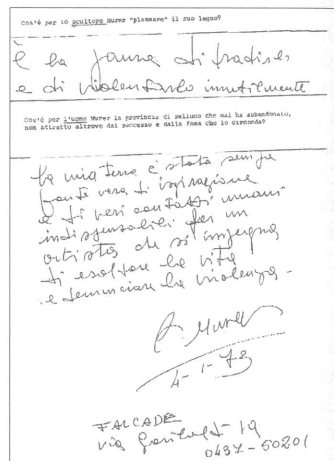 Cos'è per lo scultore Murer "plasmare" il suo legno?
È la paura di tradirlo
e di violentarlo inutilmente
Cos'è per l'uomo Murer la provincia di Belluno che mai ha abbandonato,
non attratto altrove dal successo e dalla fama che lo circonda?
La mia terra è stata sempre
fonte vera di ispirazione
e di veri contatti umani
indispensabili per un
artista che si impegna
di esaltare la vita
e denunciare la violenza.
A. Murer
4-1-73
FALCADE
via Garibaldi 19
0437-50201